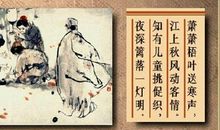 萧萧梧叶送寒声，
江上秋风动客情。
知有儿童挑促织，
夜深篱落一灯明。